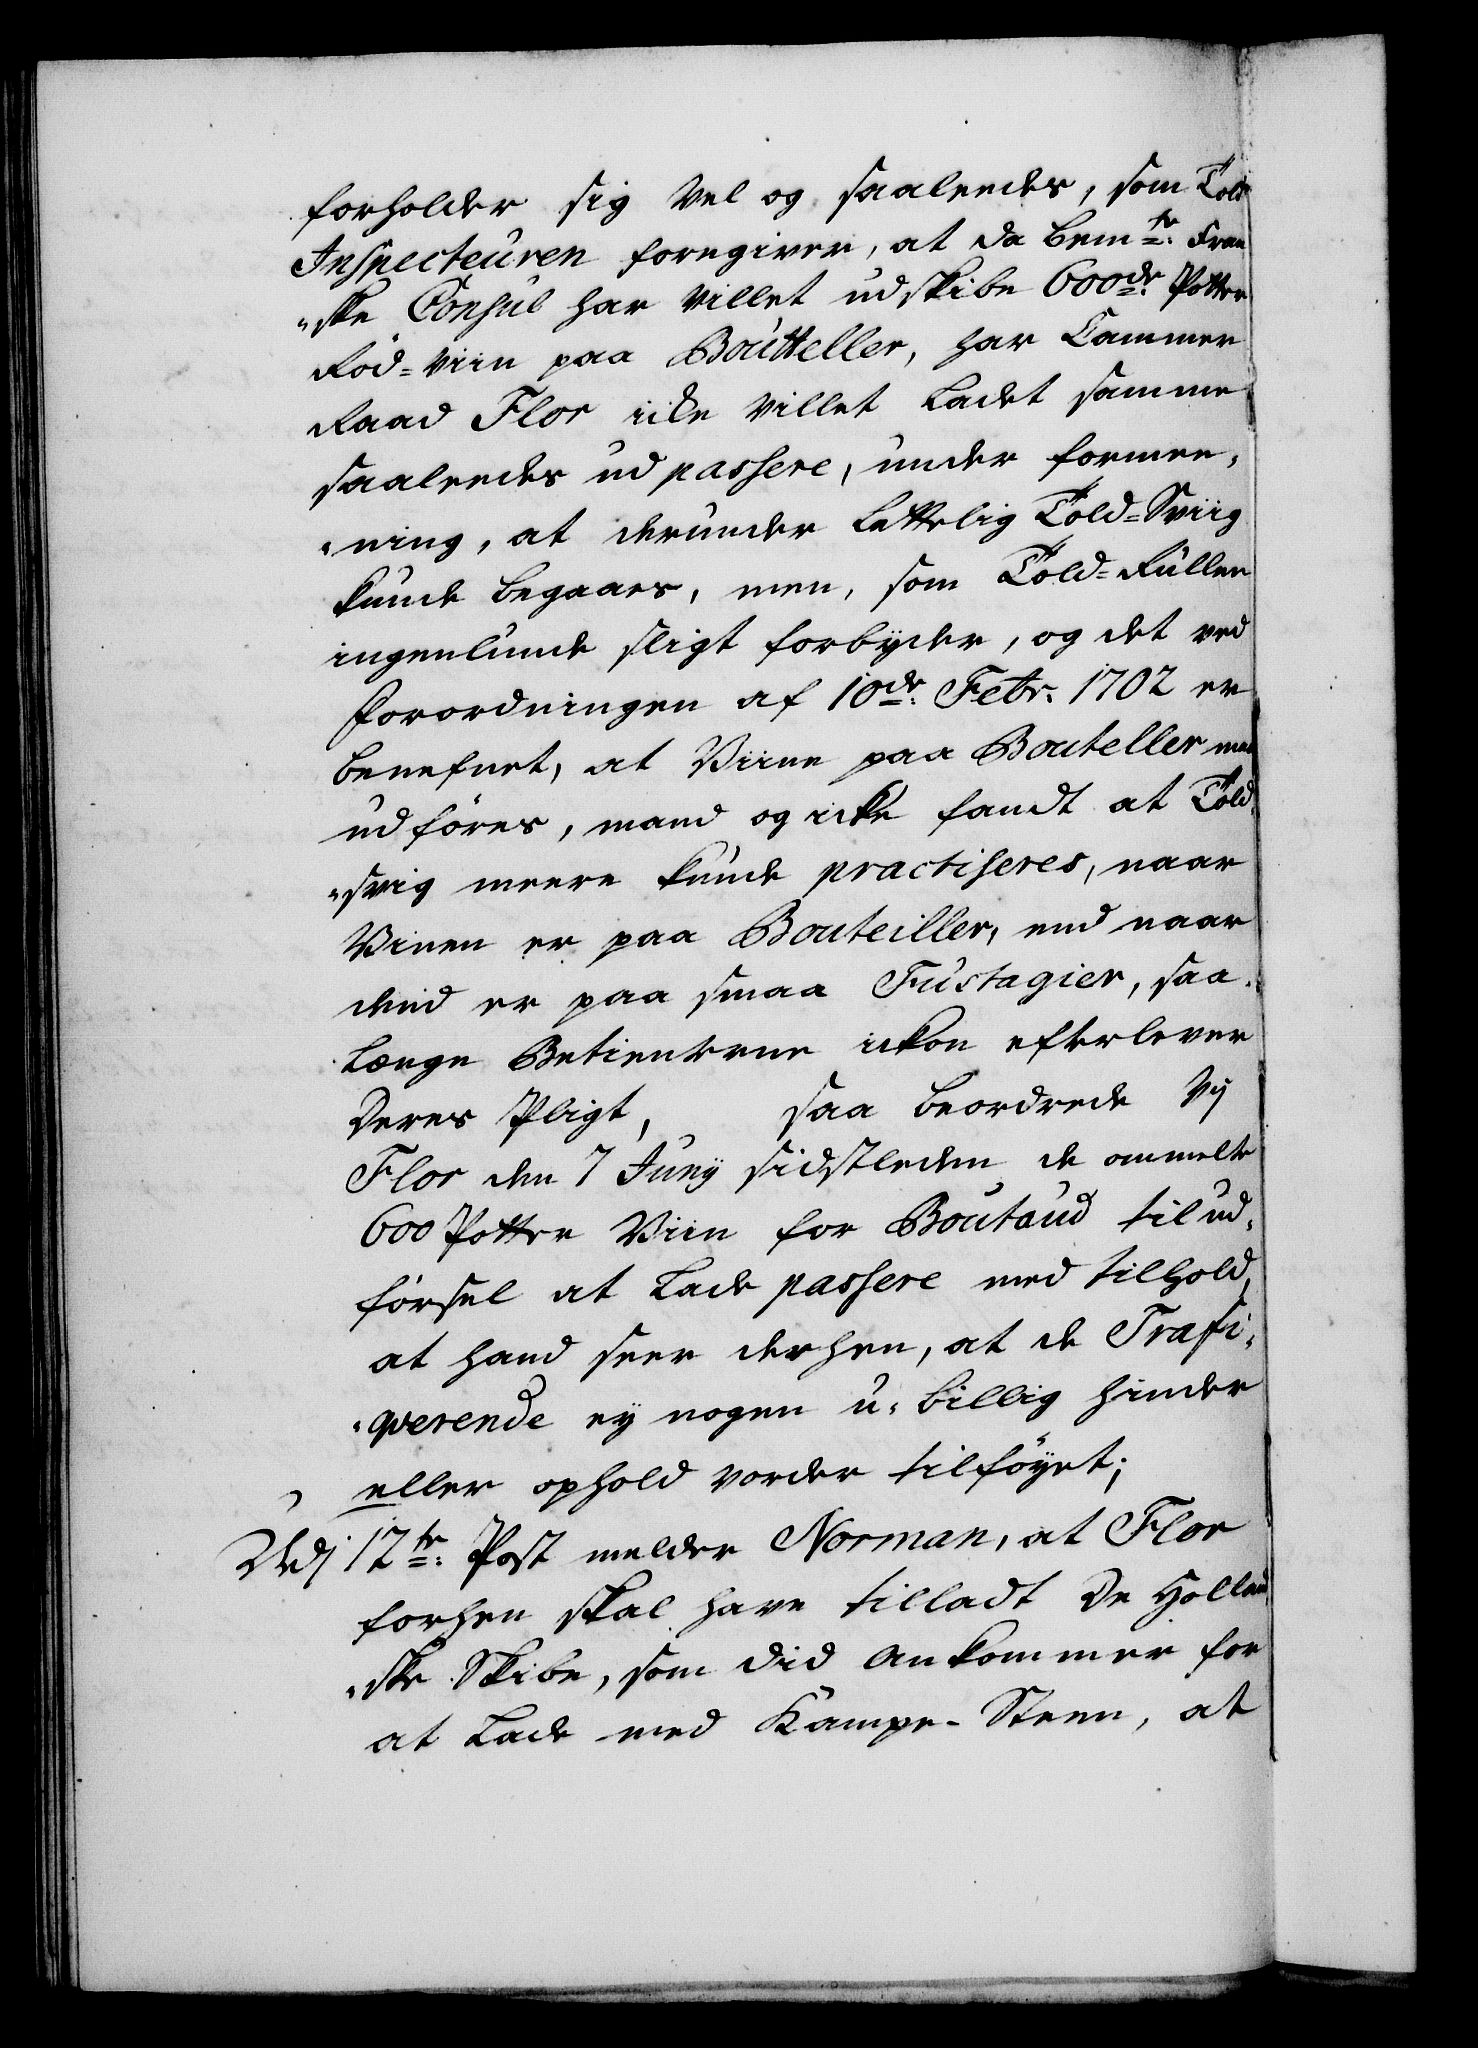 forholder sig vel og saaleedes, som Told
Inspecteuren foregiver, at da bem.te Fran
"ske Consul har villet udskibe 600de Potter
Röd-Viin paa Boutteller, har Cammer
Raad Flor icke villet Ladet samme
saaleedes ud passere, under formee,
"ning, at derunder Lettelig Told-Sviig
kunde begaaes, men, som Told-Rullen
ingenlunde sligt forbyder, og det ved
Forordningen af 10de Febr. 1702 er
benefnet, at Viine paa Bouteller maa
udföres, mand og icke fandt at Told,
"svig meere kunde practiseres, naar
Vinen er paa Bouteiller, end naar
dend er paa smaa Fustagier, saa,
Længe Betienterne ickon efterlever
Deres Pligt, saa beordrede Vj
Flor den 7 Junÿ sidstleden de ommelte
600 Potter Viin for Boutaud til ud,
försel at Lade passere med tilhold,
at hand seer derhen, at de Trafi,
"qverende eÿ nogen u-billig hinder
eller ophold vorder tilföÿet;
Ved 12te Post melder Norman, at Flor
forhen skal have tilladt De Hollan
"ske Skibe, som did ankommer for
at Lade med Kampe-Steen, at